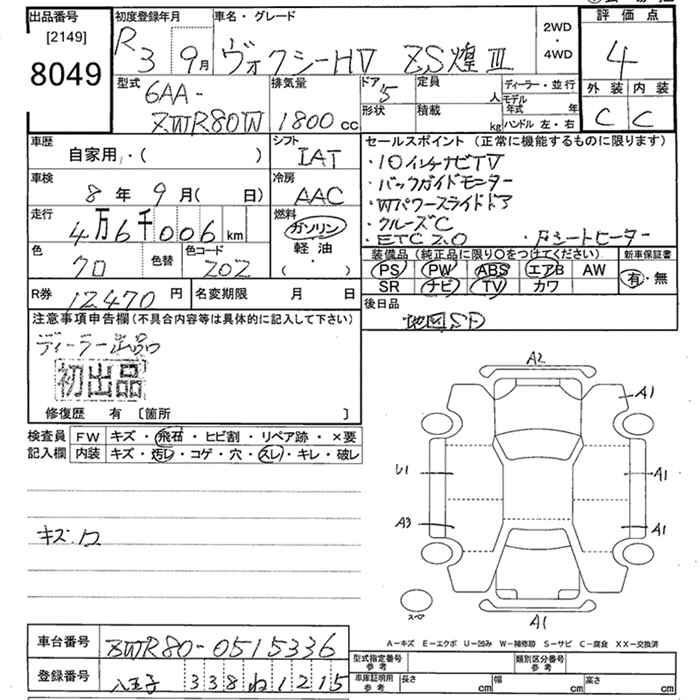 出品番号
[2149]
8049
初度登録年月
R3 9月
車名・グレード
ヴォクシーHV ZS煌Ⅲ
2WD
・
4WD
評価点
4
外装 内装
C C
型式
6AA-
ZWR80W
排気量
1800cc
ドア 5
形状
定員 人
積載 kg
ディーラー・並行
モデル年式 年
ハンドル 左・右
車歴
自家用・( )
シフト
IAT
車検
8年9月( 日)
冷房
AAC
走行
4万6千006km
燃料
ガソリン
軽油
( ・ )
色
クロ
色替
色コード
202
R券 12,470円
名変期限 月 日
セールスポイント(正常に機能するものに限ります)
・10インチナビTV
・バックガイドモニター
・Wパワースライドドア
・クルーズC
・ETC2.0 ・Fシートヒーター
装備品(純正品に限り○をつけてください)
PS PW ABS エアB AW
SR ナビ TV カワ
新車保証書
有・無
後日品
地図SD
注意事項申告欄(不具合内容等は具体的に記入して下さい)
ディーラー出品
初出品
修復歴 有 〔箇所 〕
検査員記入欄
FW キズ・飛石・ヒビ割・リペア跡・×要
内装 キズ・汚レ・コゲ・穴・スレ・キレ・破レ
キズ.ワ
A2
A1
U1
A1
A3
A1
スペア
A1
A-キズ E-エクボ U-凹み W-補修跡 S-サビ C-腐食 XX-交換済
車台番号 ZWR80-0515336
登録番号 八王子 338 ね 1215
型式指定番号参考
類別区分番号参考
車庫証明用参考 長さ cm 幅 cm 高さ cm